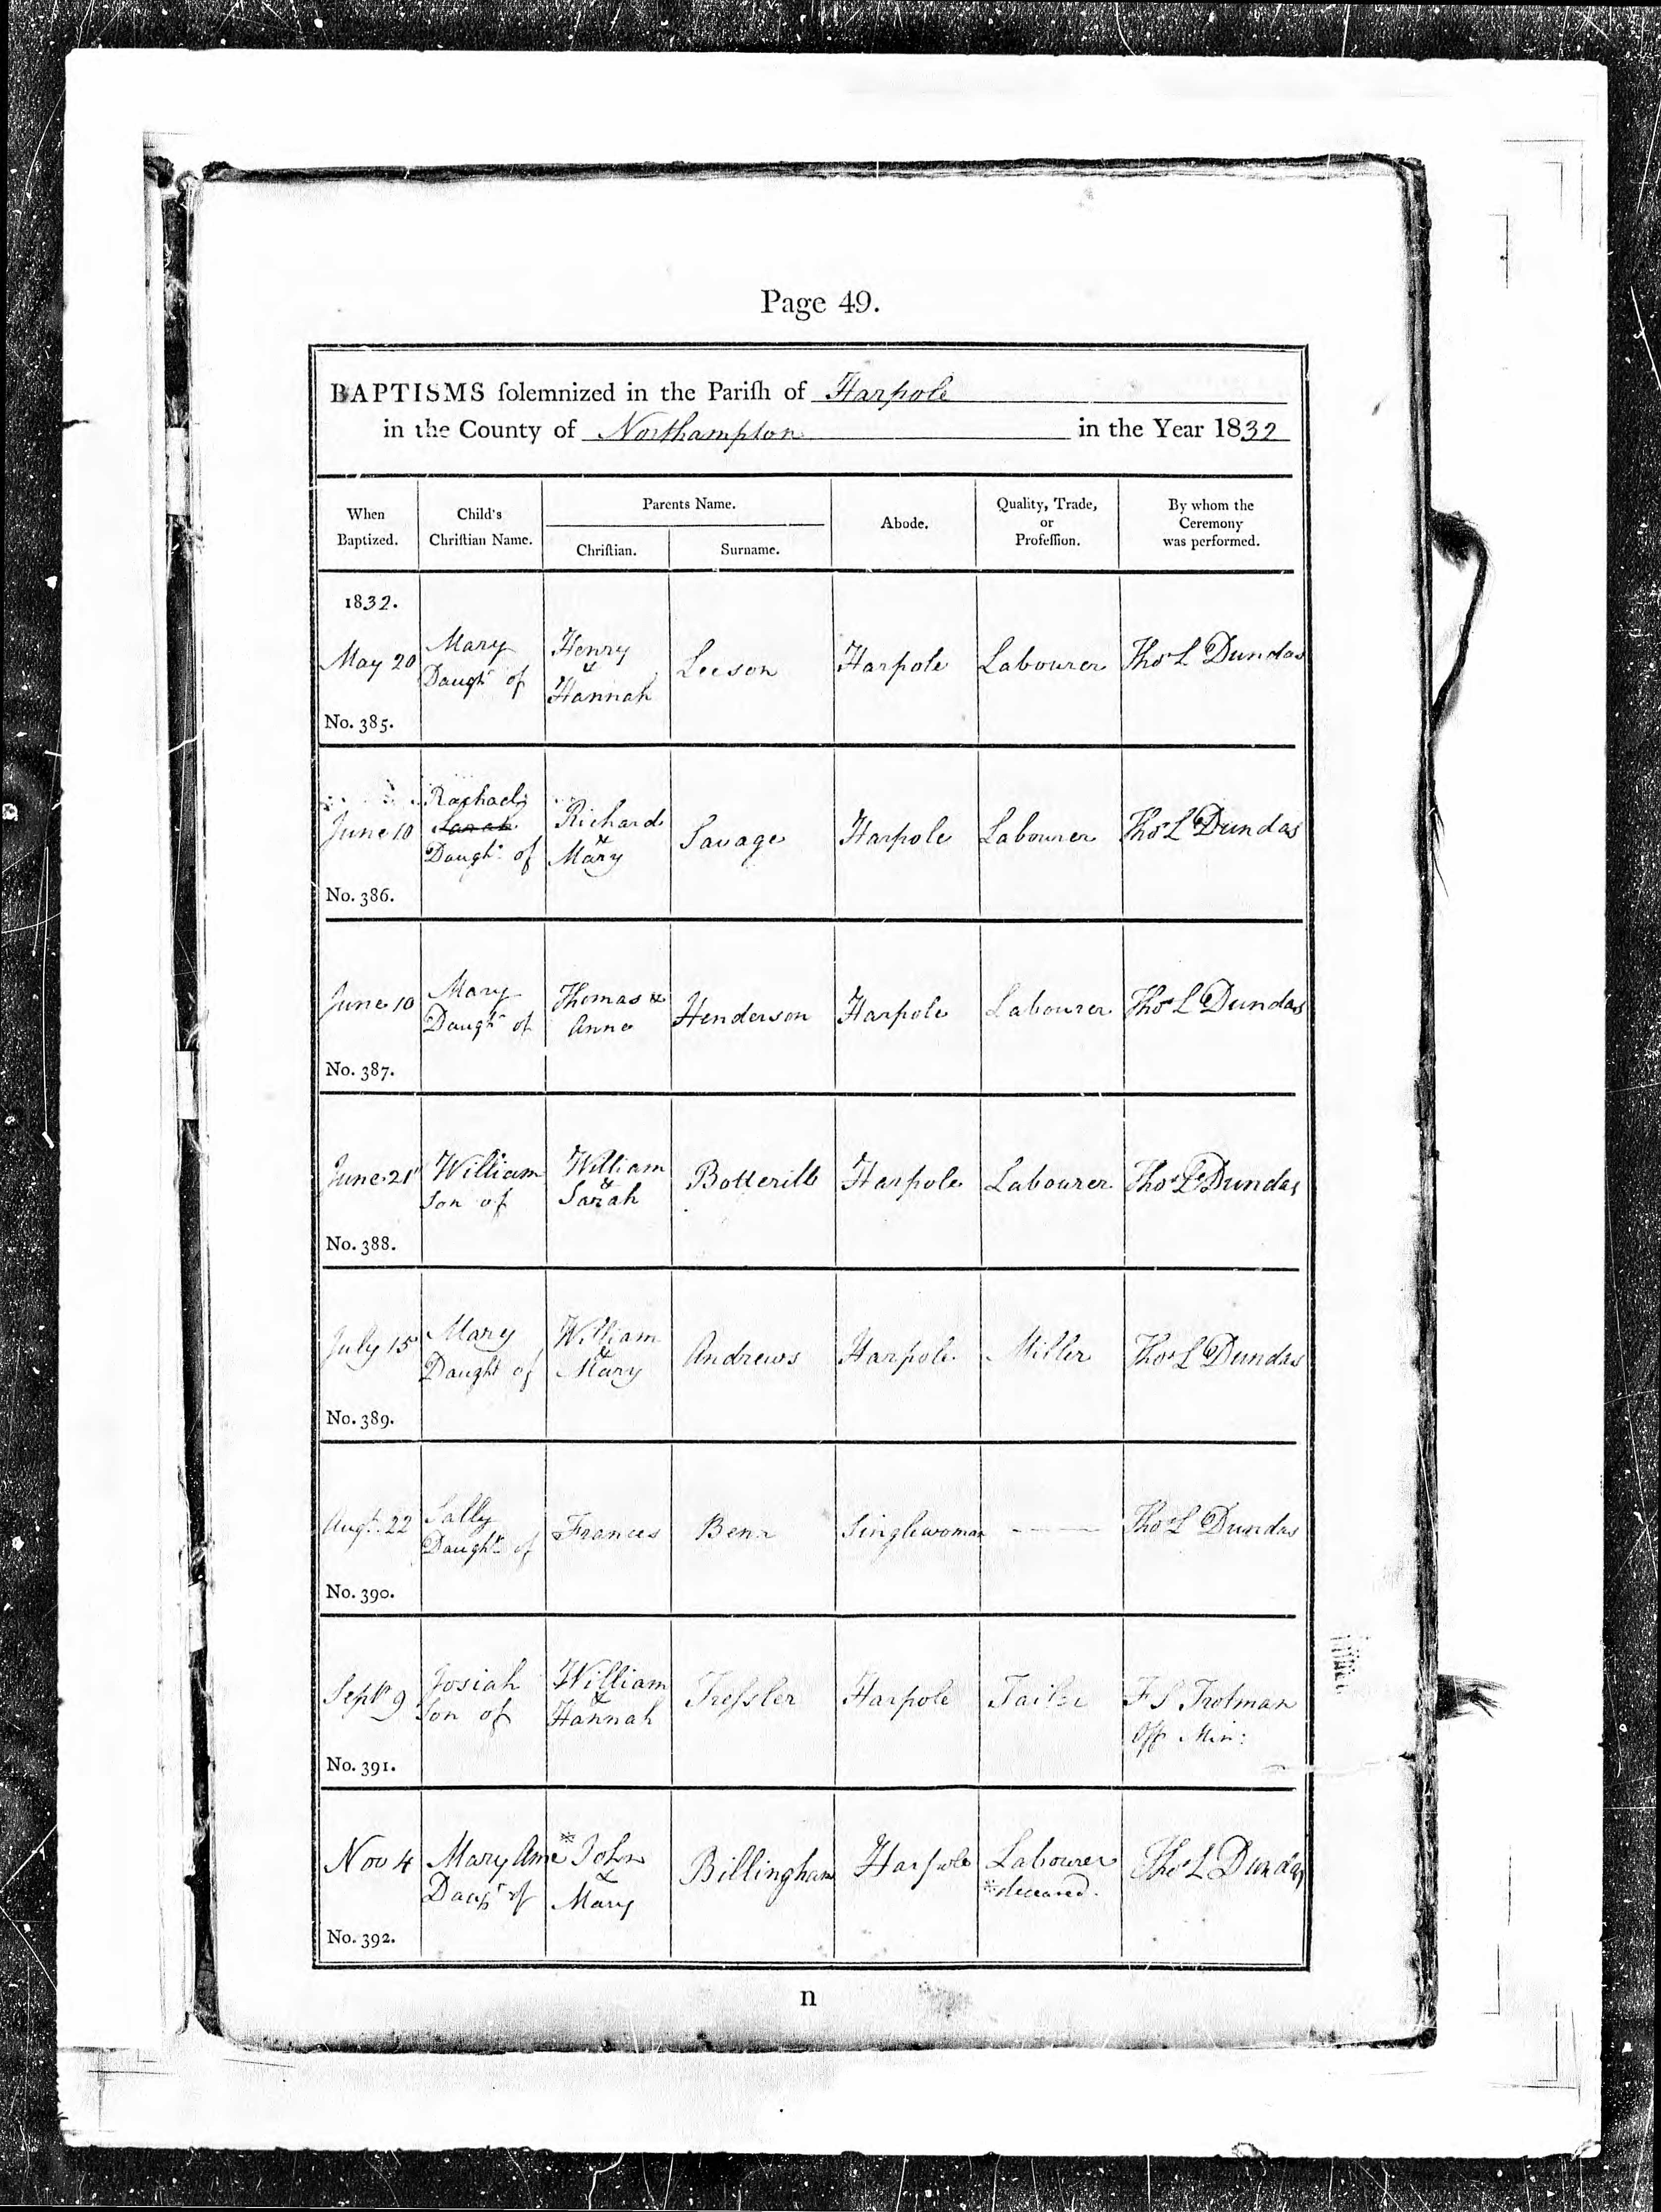 Page 49.
BAPTISMS ſolemnized in the Pariſh of Harpole
in the County of Northampton in the Year 1832
When Baptized.
Child's Chriſtian Name.
Parents Name.
Chriſtian.
Surname.
Abode.
Quality, Trade, or Profeſſion.
By whom the Ceremony was performed.
1832.
May 20
No. 385.
Mary
Daugr of
Henry
&
Hannah
Leeson
Harpole
Labourer
Thos L Dundas
June 10
No. 386.
Rachael
Sarah
Daughr of
Richard
&
Mary
Savage
Harpole
Labourer
Thos L Dundas
June 10
No. 387.
Mary
Daughr of
Thomas &
Anne
Henderson
Harpole
Labourer
Thos L Dundas
June 21
No. 388.
William
Son of
William
&
Sarah
Botterill
Harpole
Labourer
Thos L Dundas
July 15
No. 389.
Mary
Daughr of
William
&
Mary
Andrews
Harpole
Miller
Thos L Dundas
Augt. 22
No. 390.
Sally
Daughr of
Frances
Benn
Singlewoman
Thos L Dundas
Septr 9
No. 391.
Josiah
Son of
William
&
Hannah
Treſsler
Harpole
Tailor
F S Trotman
Off Min:
Nov 4
No. 392.
Mary Anne
Daugr of
* John
&
Mary
Billingham
Harpole
Labourer
* deceased.
Thos L Dundas
n